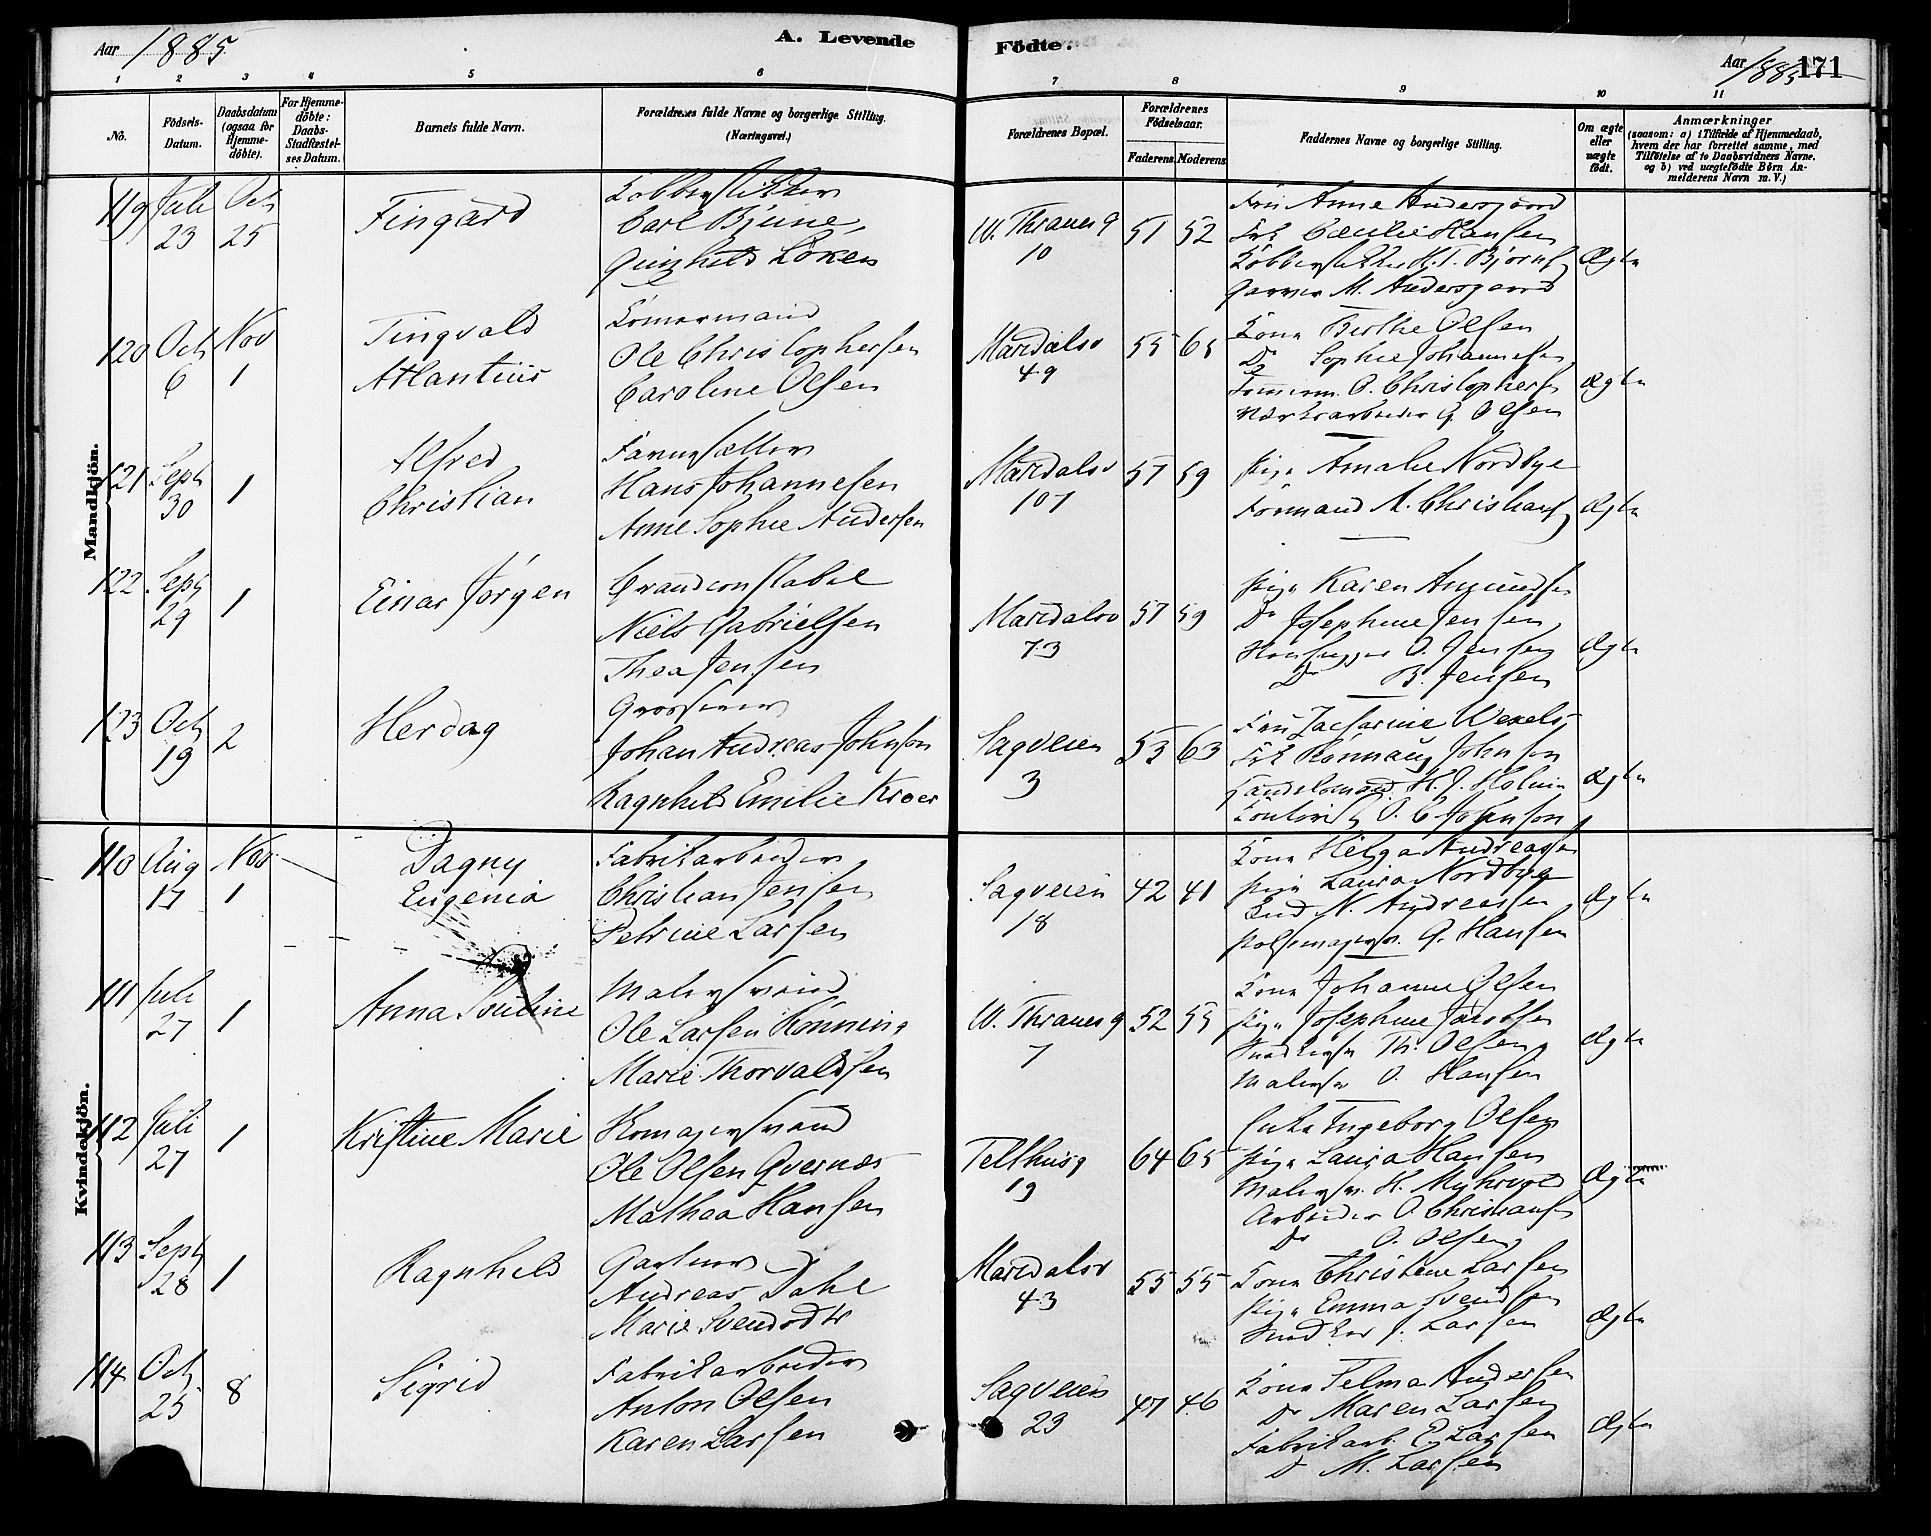 Aar 1885
A. Levende
Födte.
Aar 1885
171
1 2 3 4 5 6 7 8 9 10 11
No.
Födsels-
Datum.
Daabsdatum
(ogsaa for
Hjemme-
döbte).
For Hjemme-
döbte:
Daabs-
Stadfæstel-
ses Datum.
Barnets fulde Navn.
Forældrenes fulde Navne og borgerlige Stilling.
(Næringsvei.)
Forældrenes Bopæl.
Forældrenes
Födselsaar.
Faderens. Moderens.
Faddernes Navne og borgerlige Stilling.
Om ægte
eller
uægte
födt.
Anmærkninger
(saasom: a) i Tilfælde af Hjemmedaab,
hvem der har forrettet samme, med
Tilföielse af to Daabsvidners Navne.
og b) ved uægtefödte Börn An-
melderens Navn m. V.)
Mandkjön.
119 Juli 23 Oct 25
Fingard
Kobberstikker
Carl Bjune
Gunhild Löken
W. Thranes g
10
51 52
Fru Anne Andersgaard
Frk Cecilie Hansen
Kobberstikker H. T. Bjørns
Garver M. Andersgaard
Ægte
120 Oct 6 Nov 1
Tingvald
Atlantius
Ole Christophersen
Caroline Olsen
Maridalsv
49
55 65
Kone Berthe Olsen
Do Sophie Johannesen
O. Christophers
Værksarbeider G. Olsen
ægte
121 Sept 30 1
Alfred
Christian
Farversvend
Hans Johannesen
Anne Sophie Andersen
Maridalsv
107
57 59
Pige Amalie Nordbye
Formand A. Christians
ægte
122 Sept 29 1
Einar Jörgen
Brandconstabel
Niels Gabrielsen
Thea Jensen
Maridalsv
73
57 59
Pige Karen Amundsen
Do Josephine Jensen
O. Jensen
Do B. Jensen
Ægte
123 Oct 19 2
Herdag
Grosserer
Johan Andreas Johnson
Ragnhild Emilie Kroer
Sagveien
3
53 63
Fru Zacharine Wexels
Frk Rönnaug Johnson
Handelsmand H. J. Holm
O. C. Johnson
ægte
Kvindekjön.
110 Aug 17 Nov 1
Dagny
Eugenia
Fabrikarbeider
Christian Jensen
Petrine Larsen
Sagveien
18
42 41
Kone Helga Andreasen
Pige Laura Nordbye
Bud N. Andreasen
G. Hansen
ægte
111 Juli 27 1
Anna
Malersvend
Ole Larsen Rönning
Marie Thorvaldsen
W. Thranes g
7
52 55
Kone Johanne Olsen
Pige Josephine Jacobsen
Snedkersv Th. Olsen
Malersv O. Hansen
ægte
112 Juli 27 1
Kristine Marie
Skomagersvend
Ole Olsen Qvernæs
Mathea Hansen
Telthusg
19
64 65
Enke Ingeborg Olsen
Pige Laura Hansen
Malersv. H. Myhrvold
Arbeider O. Christians
Do O. Olsen
Ægte
113 Sept 28 1
Ragnhild
Gartner
Andreas Dahl
Marie Svendsdtr
Maridalsv
43
55 55
Kone Christine Larsen
Pige Emma Svendsen
Snedker J. Larsen
Ægte
114 Oct 25 8
Sigrid
Fabrikarbeider
Anton Olsen
Karen Larsen
Sagveien
23
47 46
Kone Selma Andersen
Do Maren Larsen
Fabrikarb. E. Larsen
Do M. Larsen
Ægte